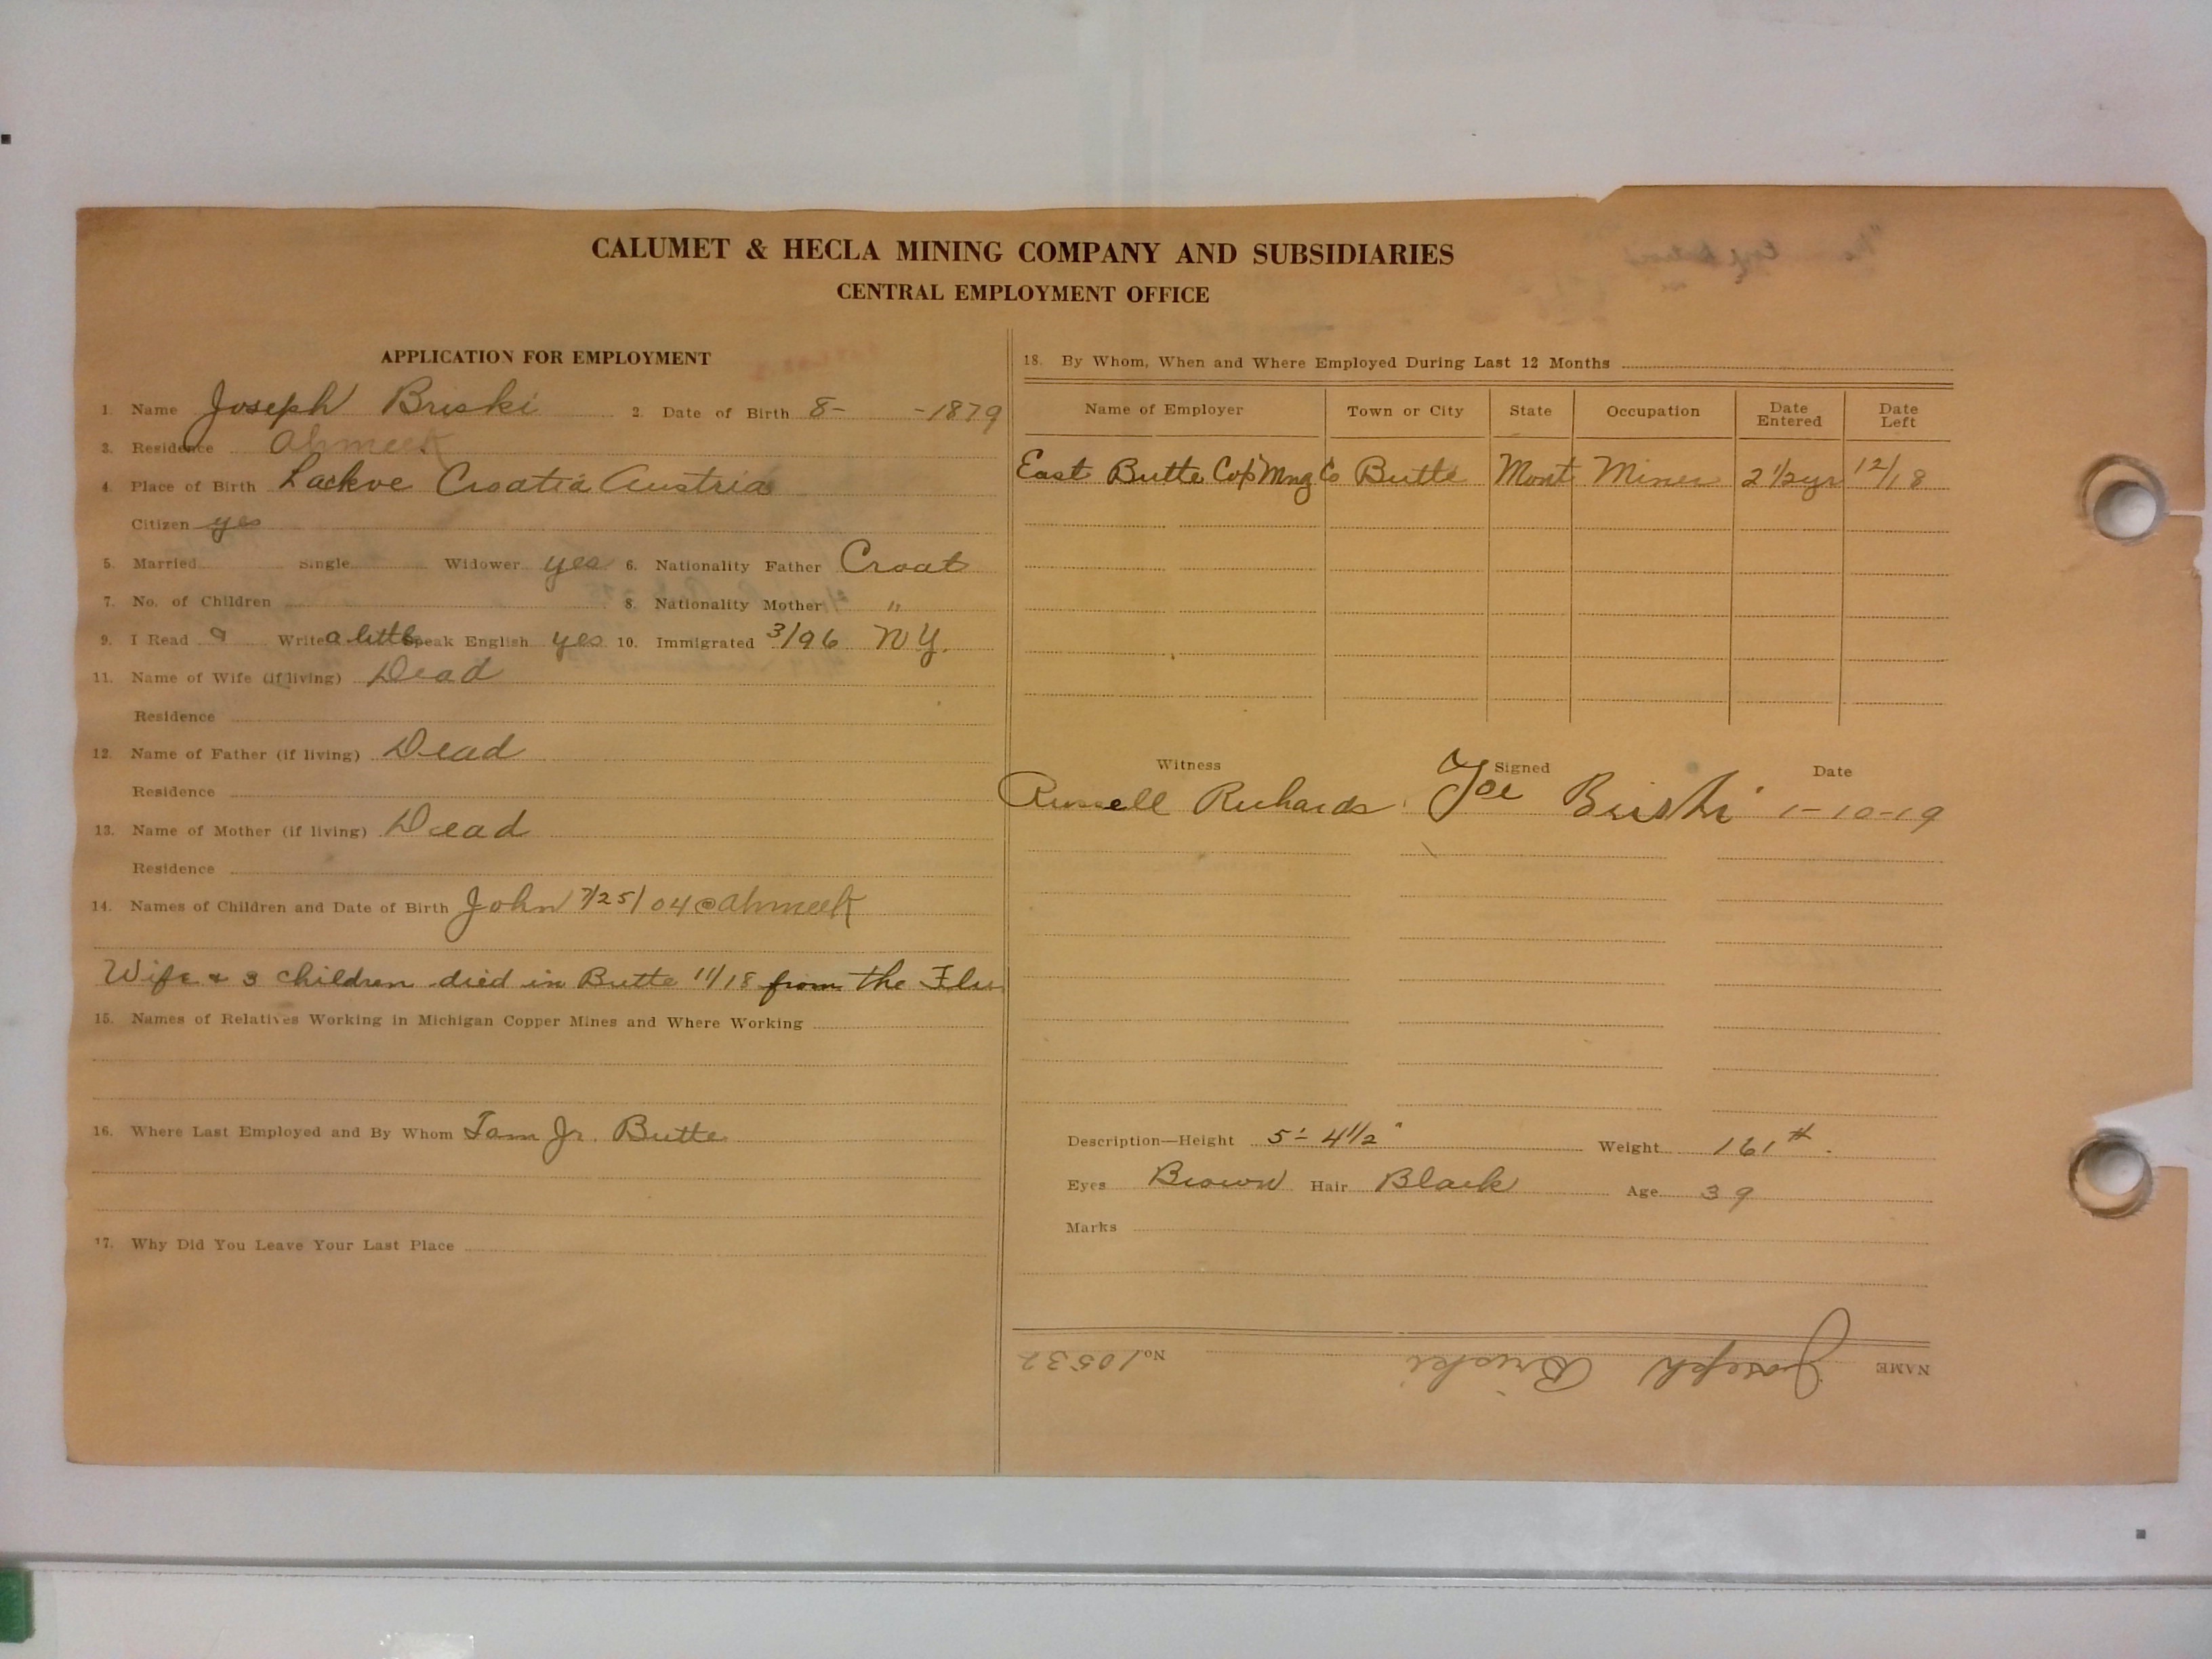 CALUMET & HECLA MINING COMPANY AND SUBSIDIARIES
CENTRAL EMPLOYMENT OFFICE
APPLICATION FOR EMPLOYMENT
1. Name Joseph Briski 2. Date of Birth 8- -1879
3. Residence Ahmeek
4. Place of Birth Lackve Croatia Austria
Citizen yes
5. Married Single Widower yes 6. Nationality Father Croat
7. No. of Children 8. Nationality Mother "
9. I Read Write a little Speak English yes 10. Immigrated 3/96 NY.
11. Name of Wife (if living) Dead
Residence
12. Name of Father (if living) Dead
Residence
13. Name of Mother (if living) Dead
Residence
14. Names of Children and Date of Birth John 7/25/04 @ Ahmeek
Wife & 3 children died in Butte 11/18 from the Flu
15. Names of Relatives Working in Michigan Copper Mines and Where Working
16. Where Last Employed and By Whom Tam Jr. Butte
17. Why Did You Leave Your Last Place
18. By Whom, When and Where Employed During Last 12 Months
Name of Employer Town or City State Occupation Date Entered Date Left
East Butte Cop Mng Co Butte Mont Miner 2 1/2 yr 12/18
Witness Signed Date
Russell Richards Joe Briski 1-10-19
Description—Height 5'- 4 1/2" Weight 161#.
Eyes Brown Hair Black Age 39
Marks
NAME Joseph Briski No. 10532